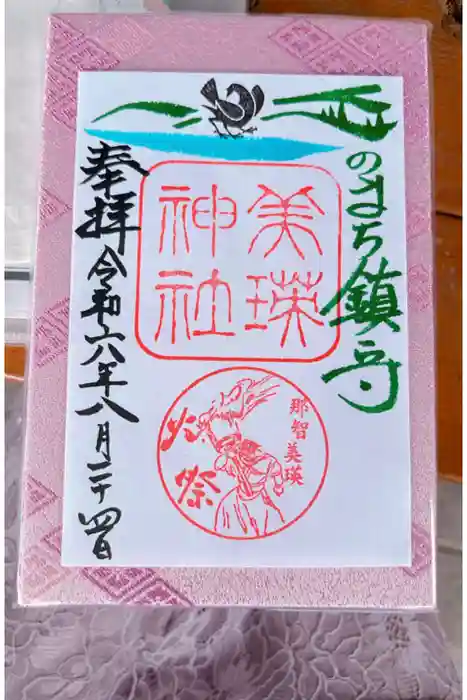 丘のまち鎮守
美瑛
神社
那智美瑛
火祭
奉拝
令和六年八月二十四日